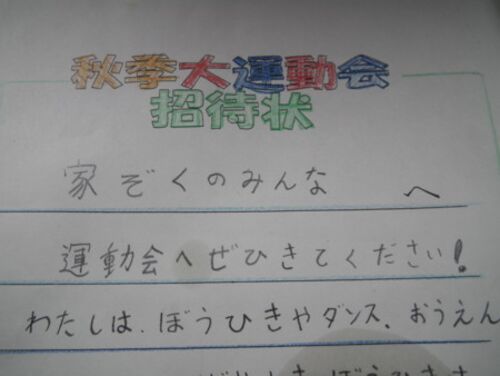 秋季大運動会
招待状
家ぞくのみんな へ
運動会へぜひきてください!
わたしは、ぼうひきやダンス、おうえん
ぼうひき